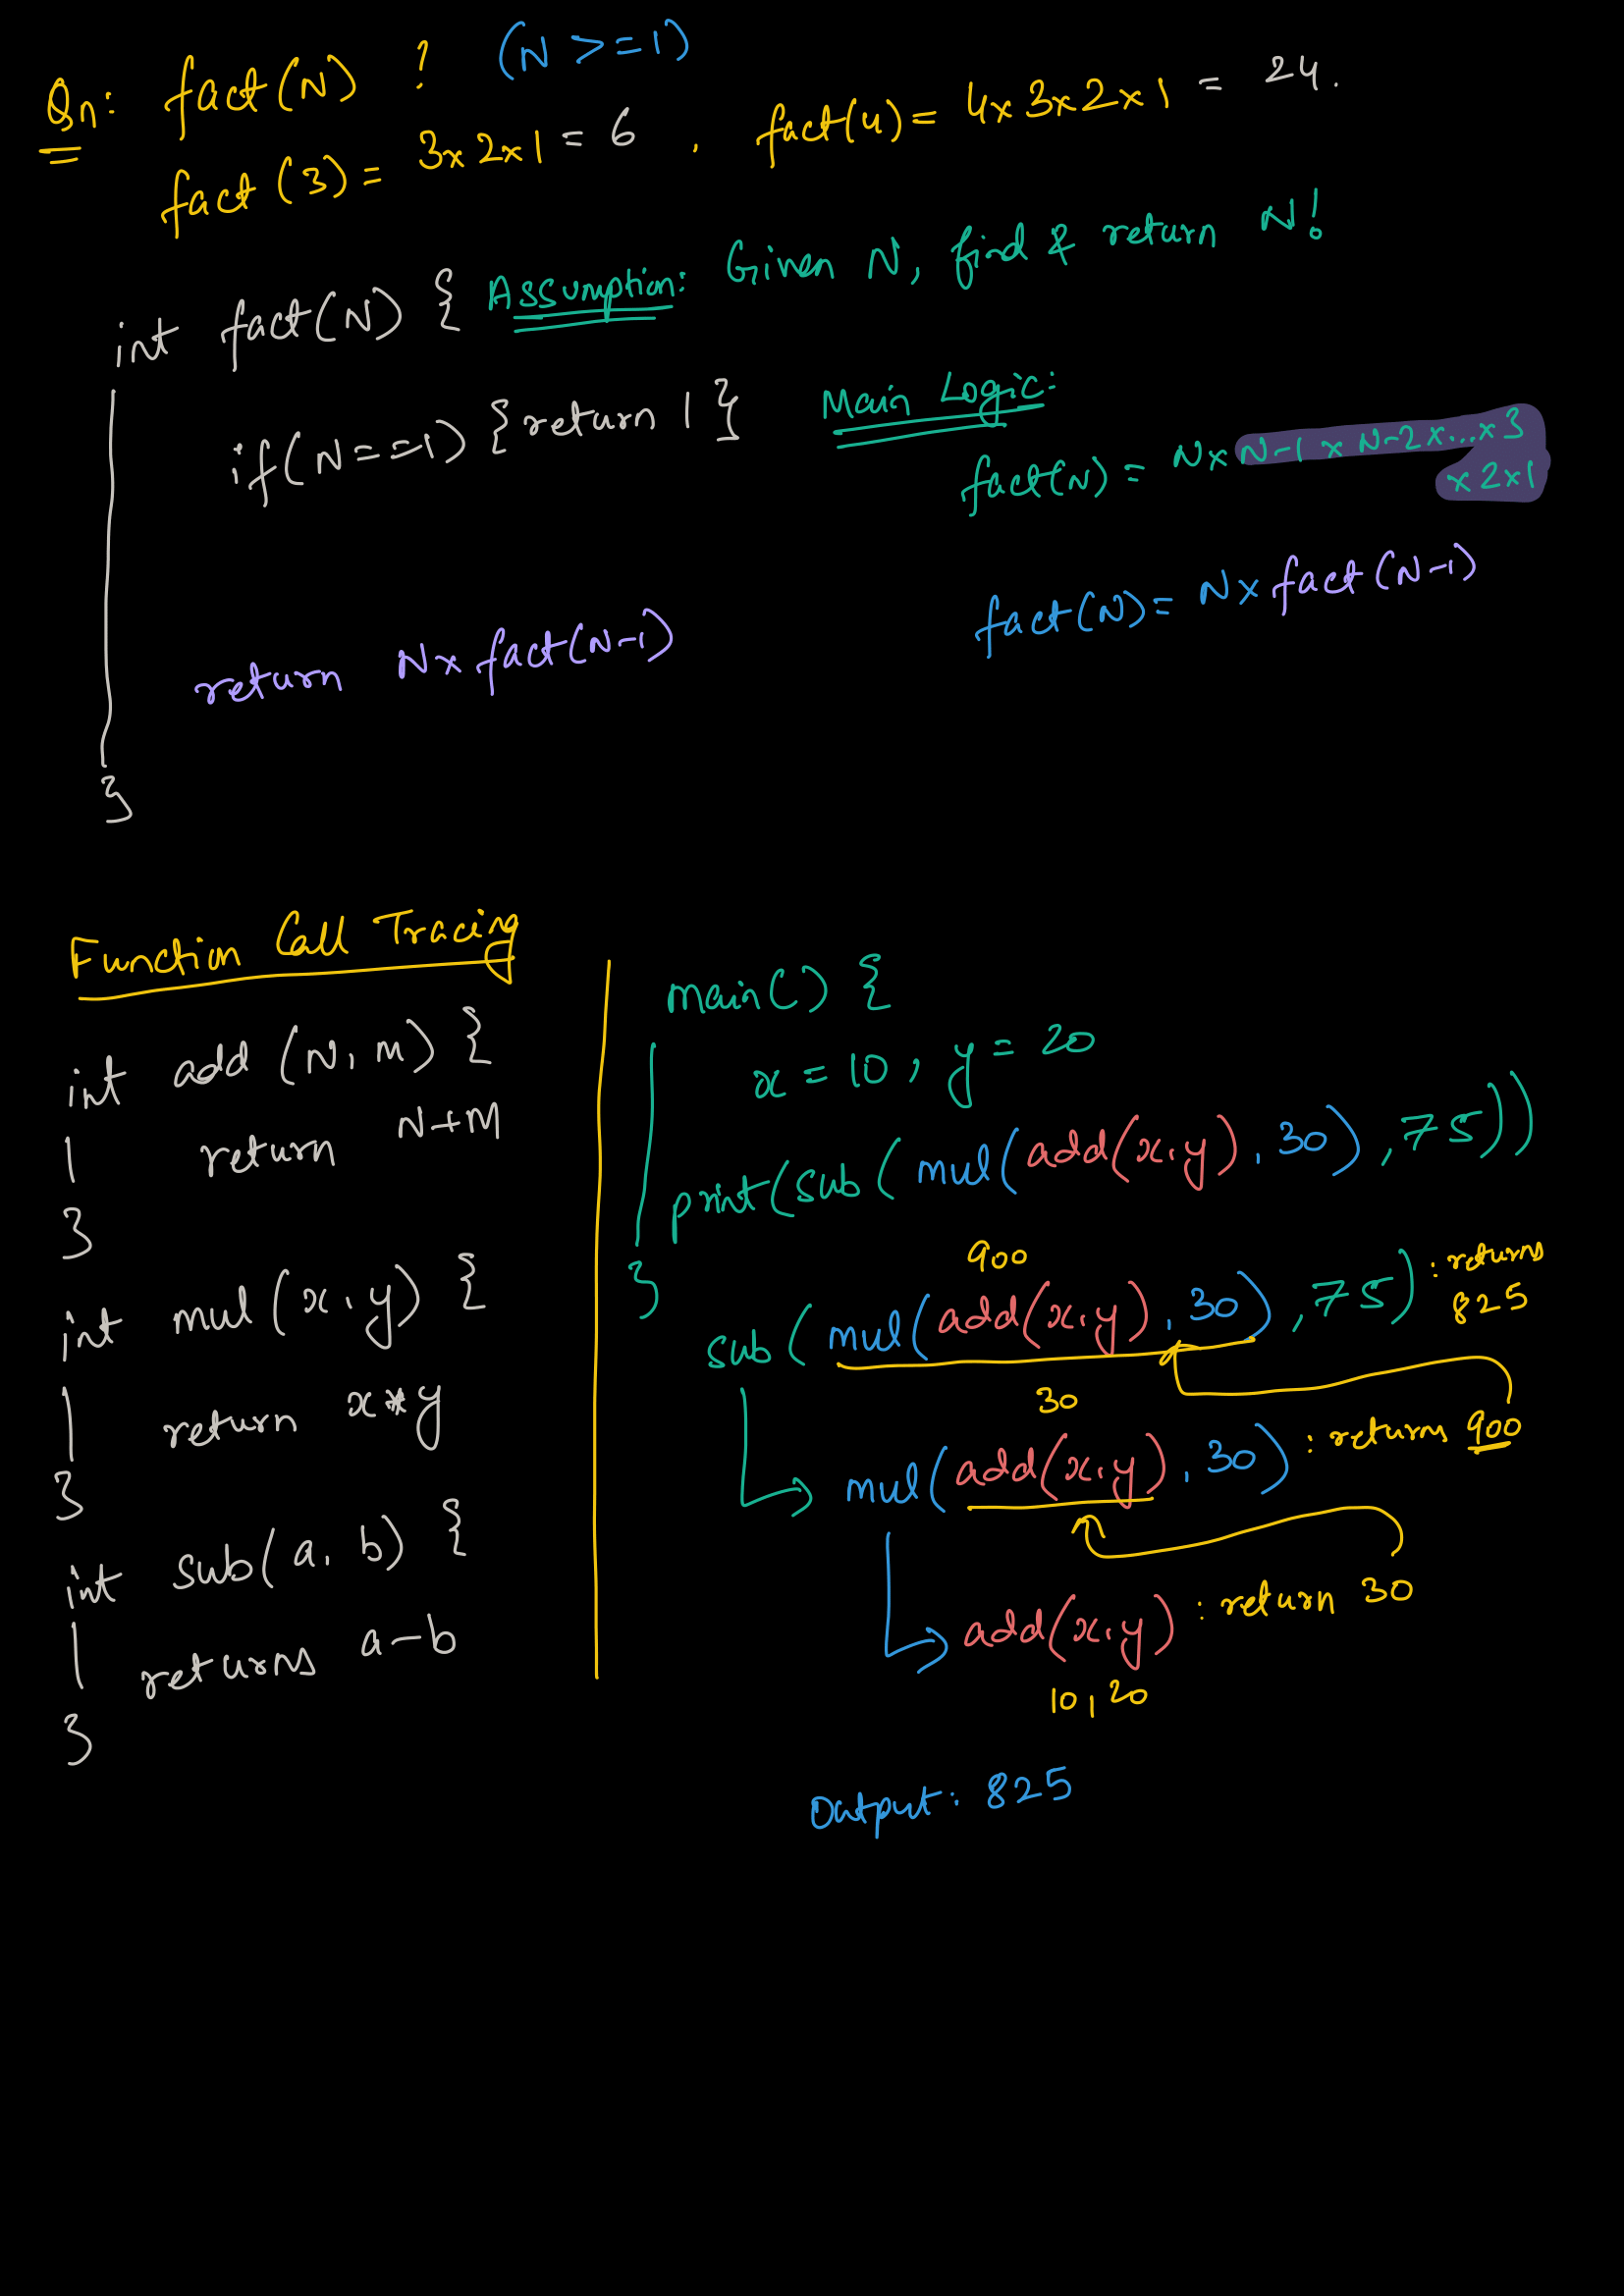 Qn: fact(N) ? (N >= 1)
fact(3) = 3x2x1 = 6 , fact(4) = 4x3x2x1 = 24.
int fact(N) { Assumption: Given N, find & return N!
if(N==1) {return 1}
Main Logic:
fact(N) = Nx N-1 x N-2x...x3
x2x1
fact(N) = Nx fact(N-1)
return Nx fact(N-1)
}
Function Call Tracing
int add (N, M) {
return N+M
}
int mul (x, y) {
return x*y
}
int sub(a, b) {
returns a-b
}
main() {
x = 10, y = 20
print(sub(mul(add(x,y), 30), 75))
}
900
sub(mul(add(x,y), 30), 75) : returns
825
30
mul(add(x,y), 30) : returns 900
add(x,y) : return 30
10, 20
Output: 825